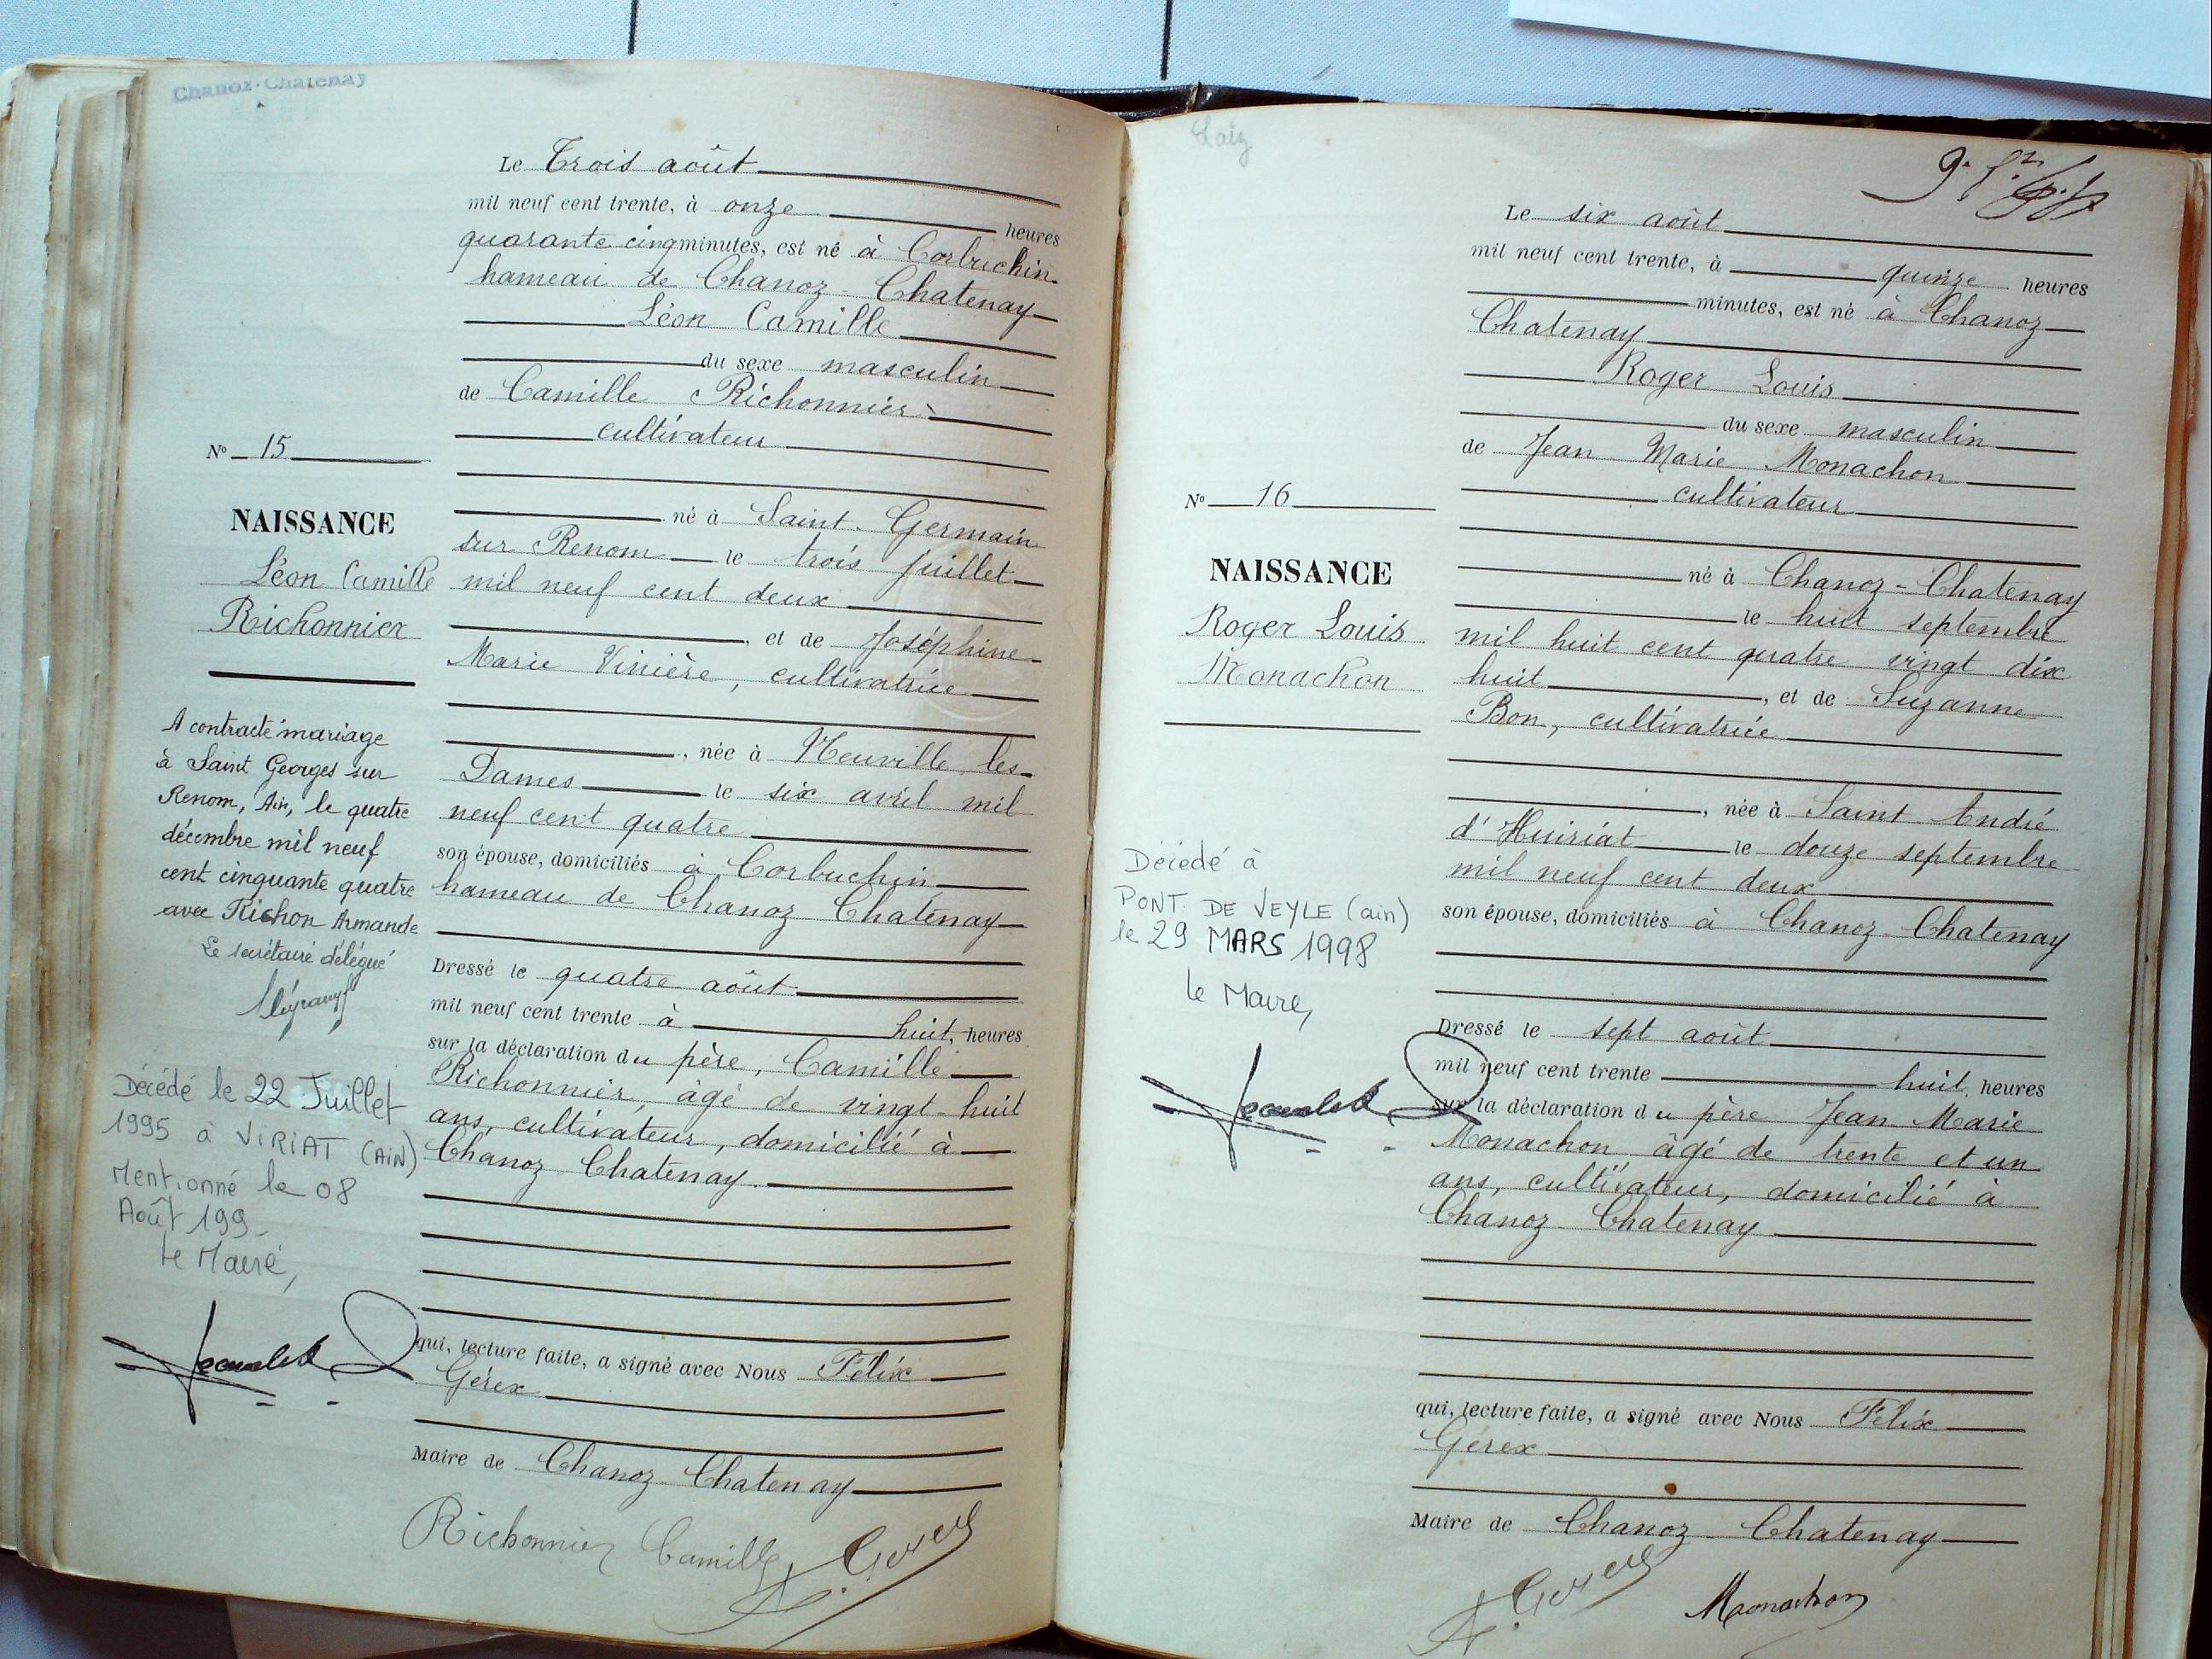 Chanoz-Chatenay
Le Trois août
mil neuf cent trente, à onze heures
quarante cinq minutes, est né à Corbuchin
hameau de Chanoz-Chatenay
Léon Camille
du sexe masculin
de Camille Richonnier
cultivateur
né à Saint-Germain
sur Renom le trois juillet
mil neuf cent deux
, et de Joséphine
Marie Vinière, cultivatrice
, née à Neuville les
Dames le six avril mil
neuf cent quatre
son épouse, domiciliés à Corbuchin
hameau de Chanoz Chatenay
Dressé le quatre août
mil neuf cent trente à huit, heures
sur la déclaration du père, Camille
Richonnier, âgé de vingt-huit
ans, cultivateur, domicilié à
Chanoz Chatenay.
qui, lecture faite, a signé avec Nous Félix
Gérex
Maire de Chanoz Chatenay
Richonnier Camille
Nº 15
NAISSANCE
Léon Camille
Richonnier
A contracté mariage
à Saint Georges sur
Renom, Ain, le quatre
décembre mil neuf
cent cinquante quatre
avec Richon Armande
Le secrétaire délégué
Décédé le 22 Juillet
1995 à VIRIAT (AIN)
Mentionné le 08
Août 199
Le Maire,
Laiz
Le six août
mil neuf cent trente, à quinze heures
minutes, est né à Chanoz
Chatenay
Roger Louis
du sexe masculin
de Jean Marie Monachon
cultivateur
né à Chanoz-Chatenay
le huit septembre
mil huit cent quatre vingt dix
huit, et de Suzanne
Bon, cultivatrice
, née à Saint André
d'Huiriat le douze septembre
mil neuf cent deux
son épouse, domiciliés à Chanoz Chatenay
Dressé le sept août
mil neuf cent trente huit, heures
sur la déclaration du père Jean Marie
Monachon âgé de trente et un
ans, cultivateur, domicilié à
Chanoz-Chatenay
qui, lecture faite, a signé avec Nous Félix
Gérex
Maire de Chanoz-Chatenay
Monachon
Nº 16
NAISSANCE
Roger Louis
Monachon
Décédé à
PONT DE VEYLE (ain)
le 29 MARS 1998
Le Maire,